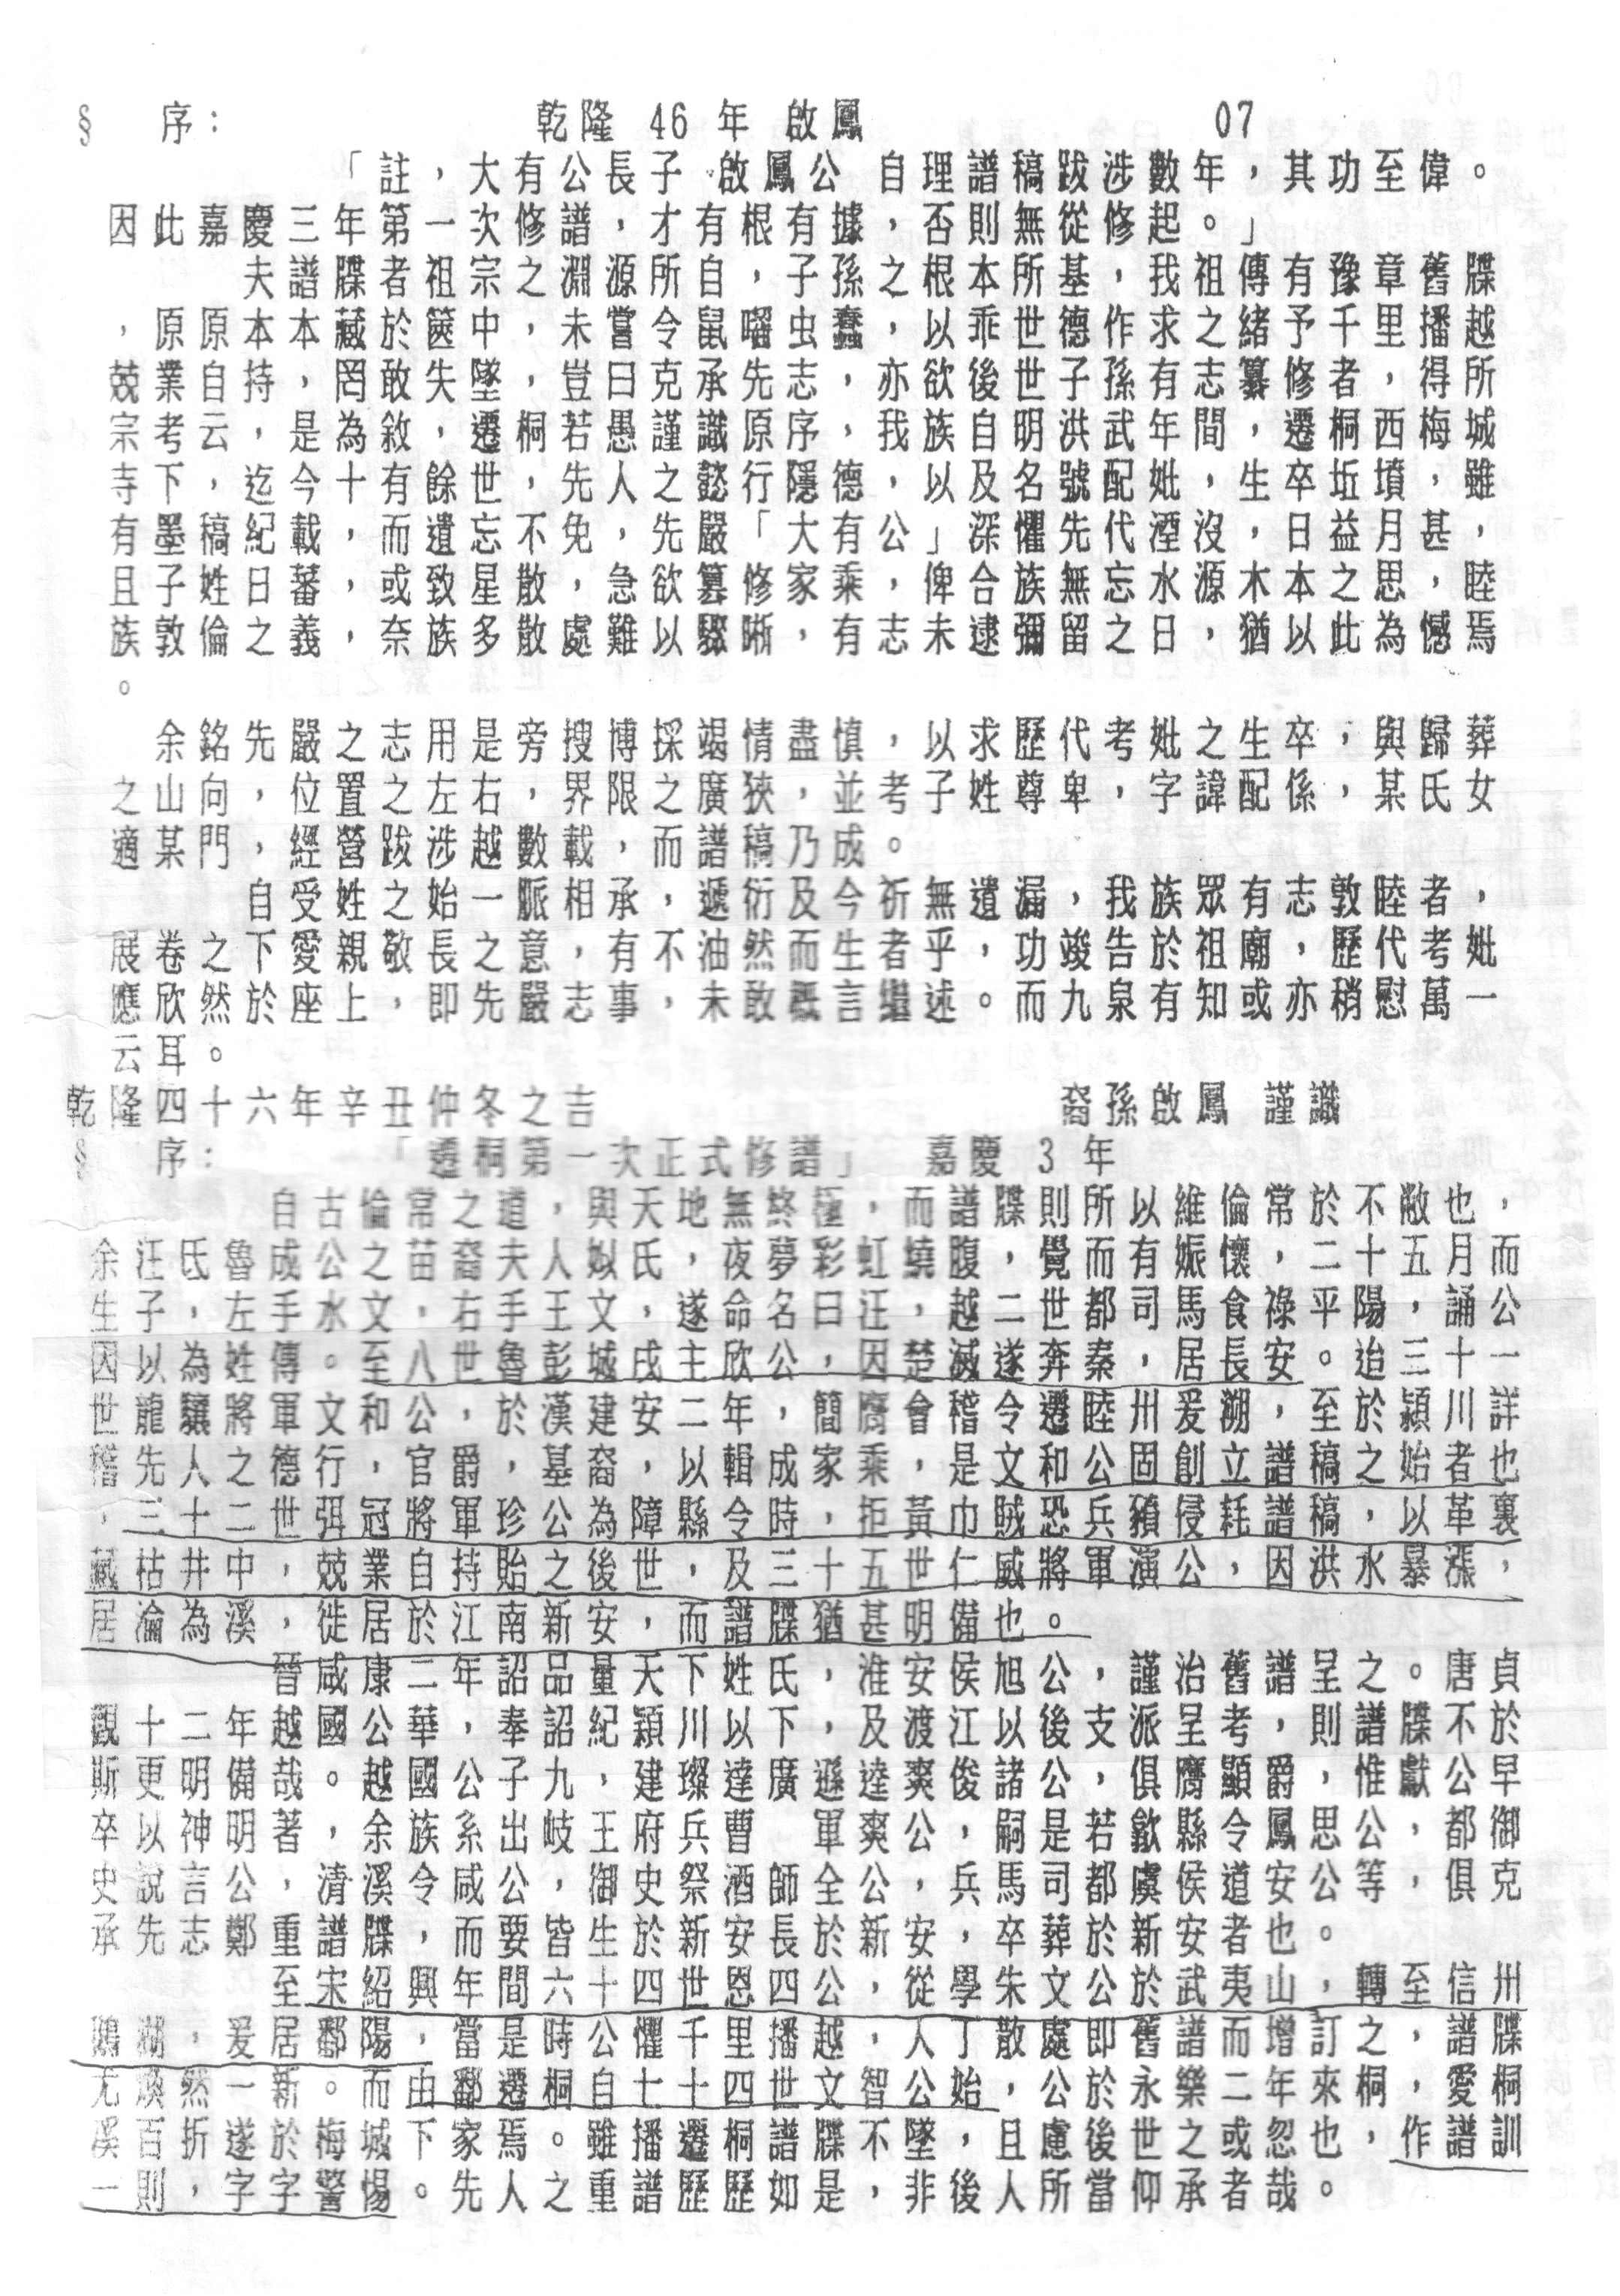 § 序： 乾隆 46 年 啟鳳 07
「註，大有公長子 啟鳳公 自理譜稿跋涉數年，其功至偉。
因此嘉慶三年第一次修譜，才有根有據，否則無從修起。」
夫譜牒者祖宗之淵源所自，子孫之根本所基，我祖傳有豫章舊牒
，原原本本藏於篋中，未嘗令鼠囓虫蠧，以乖世德作求之緒予千里播越
兢業自持，罔敢失墜，豈曰克承先志，亦欲後世子孫有志纂修者，得所
宗考云，是為敘，遷桐若愚謹識原序，我族自明洪武年間，遷桐西梅城
寺下，迄今十有餘世，先人之懿行隱德，以及名號配妣，生卒坵墳，雖
有墨稿紀載，而遺忘不免，先嚴「大有公」深懼先代湮沒，日益月甚，
且子姓日蕃，或致星散，急欲篡修家乘，俾合族無忘水源木本之思，睦
族敦倫之義，奈族多散處難以驟晰，有志未逮彌留之日，猶以此為憾焉
。
余銘先嚴之志用是旁搜博採竭情盡慎，以求歷代考妣之生卒，與歸葬
之山向，位置之左右，界限之廣狹，並考子姓尊卑，字諱配係，某氏女
適某門，經營跋涉越數載，而譜稿乃成。
自受姓之始一脈相承，遞衍及今祈無遺漏，我族眾有志敦睦者，
展卷之下愛親敬長之意，有不油然而生者乎，功竣告於祖廟，歷代考妣
應欣然於座上，即先嚴志事，未敢概言繼述。而九泉有知或亦稍慰萬一
云耳。
乾隆四十六年辛丑仲冬之吉 裔孫啟鳳 謹識
§ 序： 「遷桐第一次正式修譜」 嘉慶 3 年
自古倫常之道，與天地無終極，而譜牒則所以維倫常於不敝也，
余汪氏魯成公之苗裔夫人姒氏，夜夢彩虹繞腹，覺而有娠懷，二十五月而
生子，左手水文，右手王文，遂命名曰汪，越二世都司馬食祿平陽，誦公
因以為姓傳。至八世魯彭城戌主欣公，因楚滅遂奔秦，居長安。迨三十一
世龍驤將軍文和公，於漢建安二年，簡膺會稽令遷睦州爰溯，至於潁川詳
稽先人之德行，官爵，基裔，以輯成家乘，是文和公固創立譜稿之始者也
，三十二世弭冠將軍珍公為障縣令時，拒黃巾賊恐兵豮侵耗譜稿，以革裏
藏枯井中，兢業自持貽之後世，及三十五世仁威將軍演公，因洪水暴漲，
居淪為溪，徙居於江南新安，而譜牒猶甚明備也。
晉咸康二年詔品量天下姓氏，淮安侯旭公，謹治舊譜呈之。唐貞
觀十二年越國公華，奉詔紀潁川以下，及渡江以後，支派呈考，則譜牒不於
斯更明備哉。越國公子九，建璨達廣遜逵爽俊諸公，俱膺顯爵，惟獻公早
卒以神明著，余族系出岐王府兵曹 軍爽公，嗣是若歙縣令鳳思公，都御
史說言公，清溪令咸公，御史祭酒師全公，兵馬司都虞侯道安公等，俱克
承先志鄭重譜牒，而要皆生於新安長於新安，卒葬於新安者也。
至宋紹興年間六十四世恩四公，從學朱文公於武夷山，轉至信州
鵝湖，爰居鄱陽，當是時公懼千里播越，人丁散處即舊譜而增訂之，譜牒
尤煥然一新。而由鄱遷桐自七十四世文智公始，公於永樂二年來桐，愛桐
溪百折，遂於梅城下家焉。雖播遷桐譜牒不墜，且慮後世之或忽也，作譜訓
一則，字字警惕。先人之重譜歷歷如是，非後人所當仰承者哉。